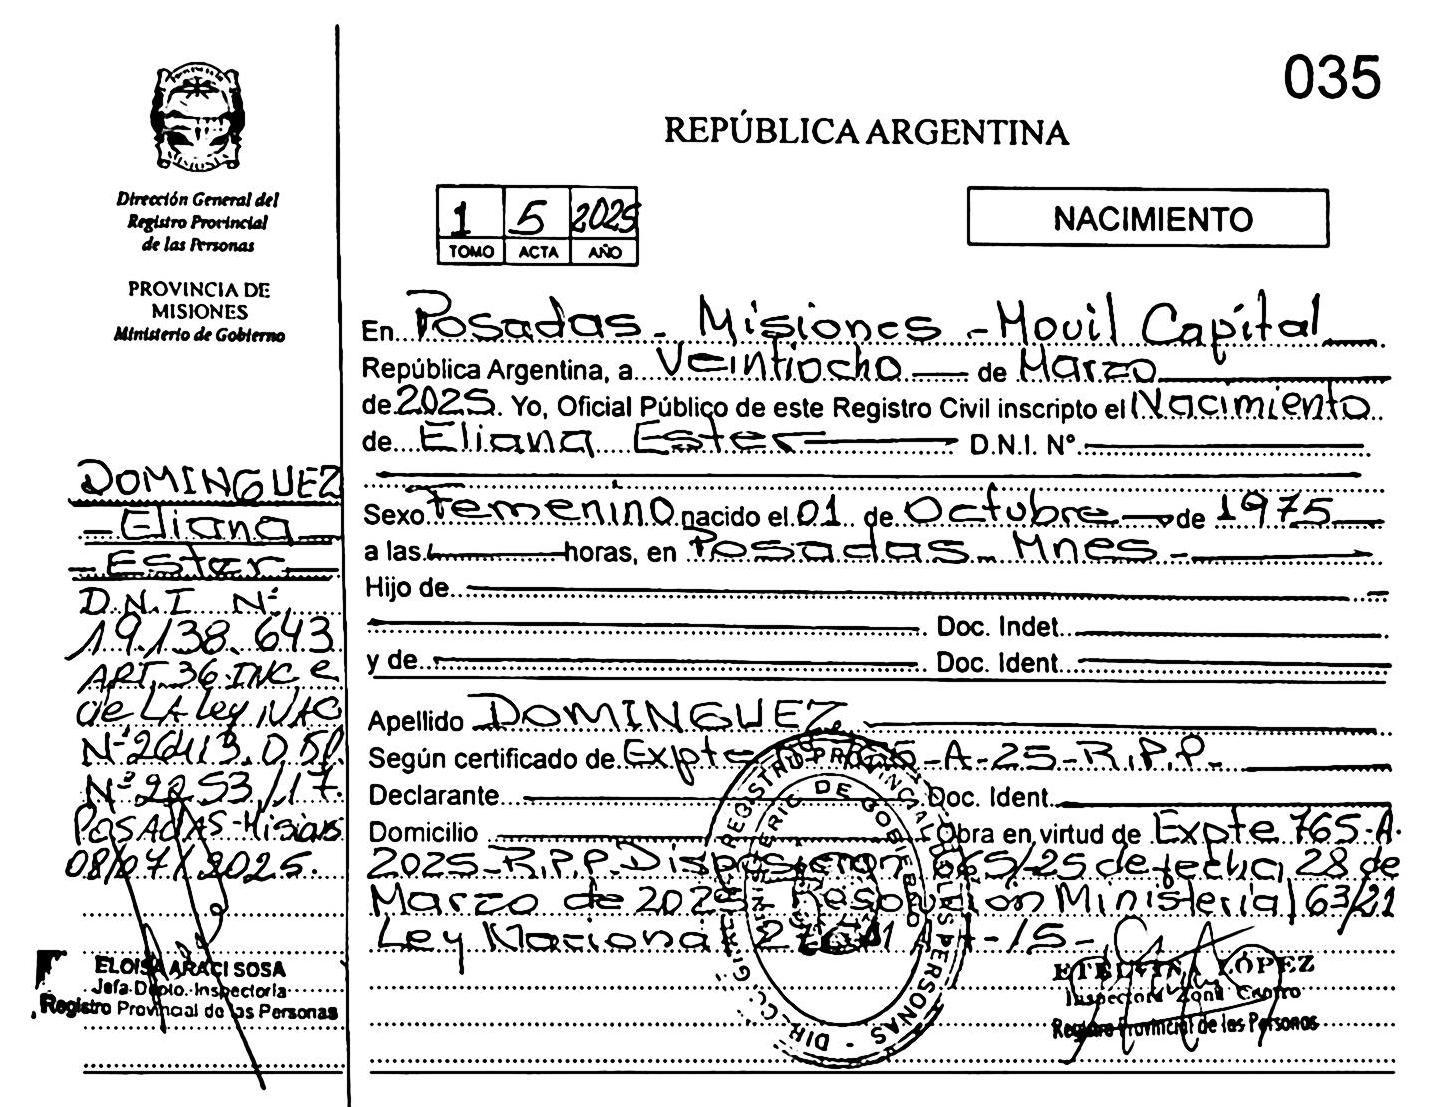 035
REPÚBLICA ARGENTINA
Dirección General del
Registro Provincial
de las Personas
PROVINCIA DE
MISIONES
Ministerio de Gobierno
1 5 2025
TOMO ACTA AÑO
NACIMIENTO
En Posadas - Misiones - Movil Capital
República Argentina, a Veintiocho de Marzo
de 2025. Yo, Oficial Público de este Registro Civil inscripto el Nacimiento
de Eliana Ester D.N.I. Nº
Sexo Femenino nacido el 01 de Octubre de 1975
a las horas, en Posadas - Mnes -
Hijo de
Doc. Indet.
y de Doc. Ident.
Apellido DOMINGUEZ
Según certificado de Expte -A-25-R.P.P-
Declarante Doc. Ident.
Domicilio Obra en virtud de Expte 765-A-
2025-R.P.P. Disposición 665/25 de fecha 28 de
Marzo de 2025 Resolución Ministerial 63/21
Ley Nacional -15-
DOMINGUEZ
- Eliana
- Ester
D.N.I Nº
19.138.643
ART. 36 INC e
de LA Ley NAC
Nº 26413. D
Nº 2253/17.
POSADAS-Misiones
08/07/2025.
ELOISA ARACI SOSA
Jefa Dpto. Inspectoria
Registro Provincial de las Personas
DIR. GRAL. REGISTRO PROVINCIAL DE LAS PERSONAS
MINISTERIO DE GOBIERNO
ETELVINA LÓPEZ
Inspectora Zona Centro
Registro Provincial de las Personas